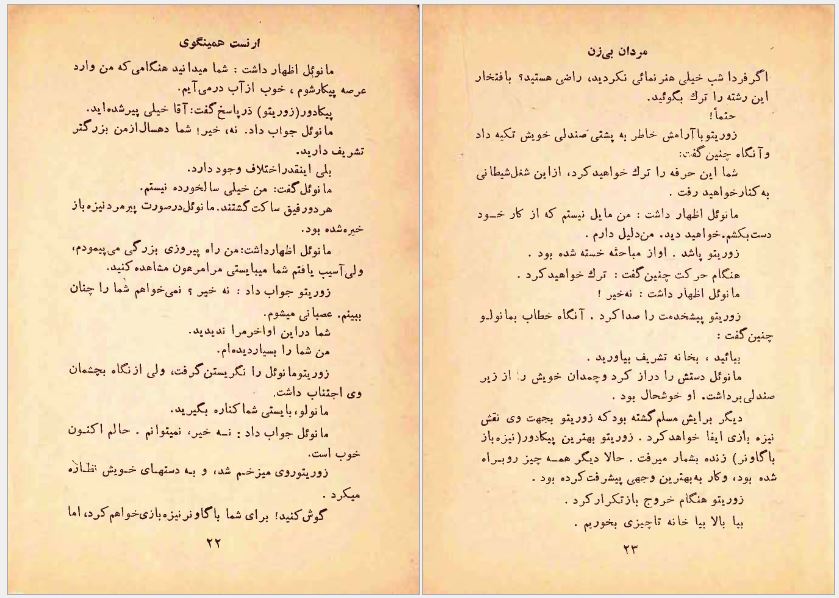 ارنست همینگوی
مانوئل اظهار داشت : شما میدانید هنگامی‌که من وارد
عرصه پیکارشوم ، خوب از آب درمی‌آیم.
پیکادور(زوریتو) درپاسخ گفت: آقا خیلی پیرشده‌اید.
مانوئل جواب داد. نه، خیر! شما ده‌سال‌ازمن بزرگتر
تشریف دارید.
بلی اینقدراختلاف وجود دارد.
مانوئل‌گفت: من خیلی سالخورده نیستم.
هردورفیق ساکت گشتند. مانوئل‌درصورت پیرمردنیزه‌باز
خیره‌شده بود.
مانوئل اظهارداشت: من راه پیروزی بزرگی می‌پیمودم،
ولی‌آسیب یافتم شما میبایستی مرامرهون مشاهده کنید.
زوریتو جواب داد : نه خیر ؟ نمی‌خواهم شما را چنان
ببینم. عصبانی میشوم.
شما دراین اواخرمرا ندیدید.
من شما را بسیاردیده‌ام.
زوریتومانوئل را نگریستن‌گرفت، ولی ازنگاه بچشمان
وی اجتناب داشت.
مانولو، بایستی شما کناره بگیرید.
مانوئل جواب داد : نـه خیر، نمیتوانم . حالم اکنـون
خوب است.
زوریتوروی میزخـم شد، و بـه دستهـای خـویش نظـاره
میکرد .
گوش‌کنید! برای شما باگاونرنیزه‌بازی‌خواهم‌کرد، اما
۲۲
مردان بی‌زن
اگرفردا شب خیلی هنرنمائی نکردید، راضی هستید؟ باافتخار
این رشته را ترك بگوئید.
حتماً!
زوریتوباآرامش خاطر به پشتی صندلی خویش تکیه داد
و آنگاه چنین گفت:
شما این حرفه را ترك خواهیدکرد، ازاین شغل‌شیطانی
به‌کنارخواهید رفت .
مانوئل اظهار داشت : من مایل نیستم که از کار خـود
دست‌بکشم.خواهید دید. من‌دلیل دارم .
زوریتو پاشد . اواز مباحثه خسته شده بود .
هنگام حرکت چنین‌گفت : ترك خواهیدکرد .
مانوئل اظهار داشت : نه‌خیر !
زوریتو پیشخدمت را صداکرد . آنگاه خطاب بمانولـو
چنین‌گفت :
بیائید ، بخانه تشریف بیاورید .
مانوئل دستش را دراز کرد وچمدان خویش را از زیر
صندلی‌برداشت. او خوشحال بود .
دیگر برایش مسلم‌گشته بودکه زوریتو بجهت وی نقش
نیزه بازی ایفا خواهدکرد . زوریتو بهترین پیکادور(نیزه‌باز
باگاونر) زنده بشمار میرفت . حالا دیگر همـه چیز روبـراه
شده بود، وکار به‌بهترین وجهی پیشرفت‌کرده بود .
زوریتو هنگام خروج بازتکرارکرد .
بیا بالا بیا خانه تاچیزی بخوریم .
۲۳